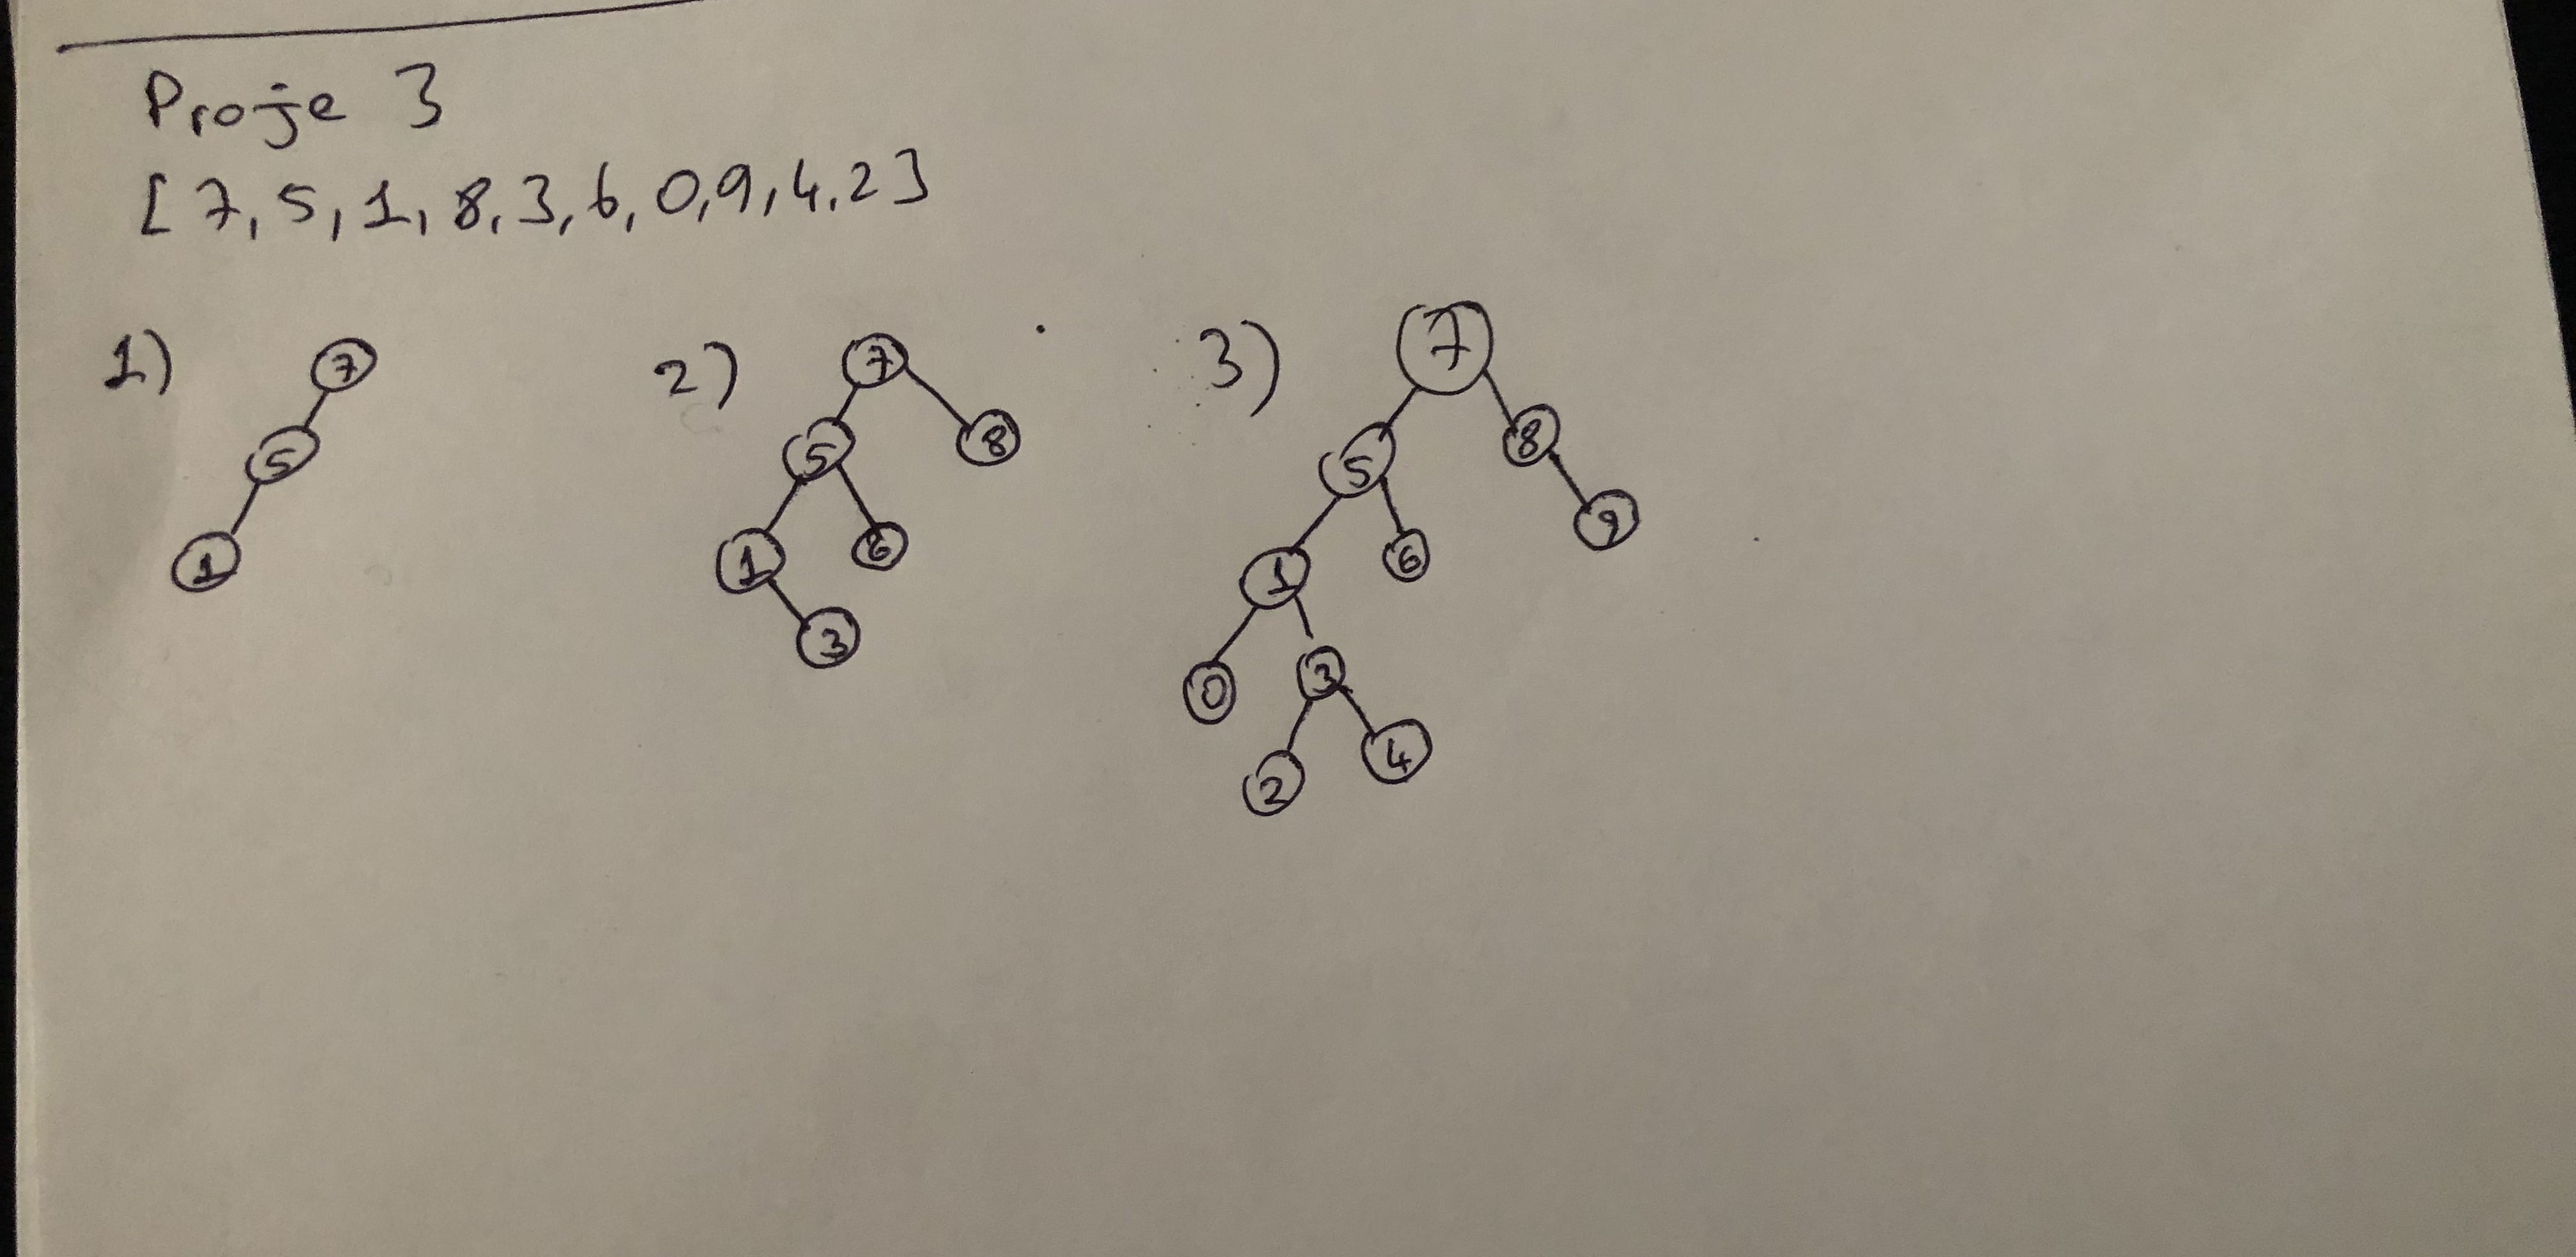 Proje 3
[7, 5, 1, 8, 3, 6, 0, 9, 4, 2]
1)
7
5
1
2)
7
5
8
1
6
3
3)
7
5
8
9
1
6
0
3
2
4